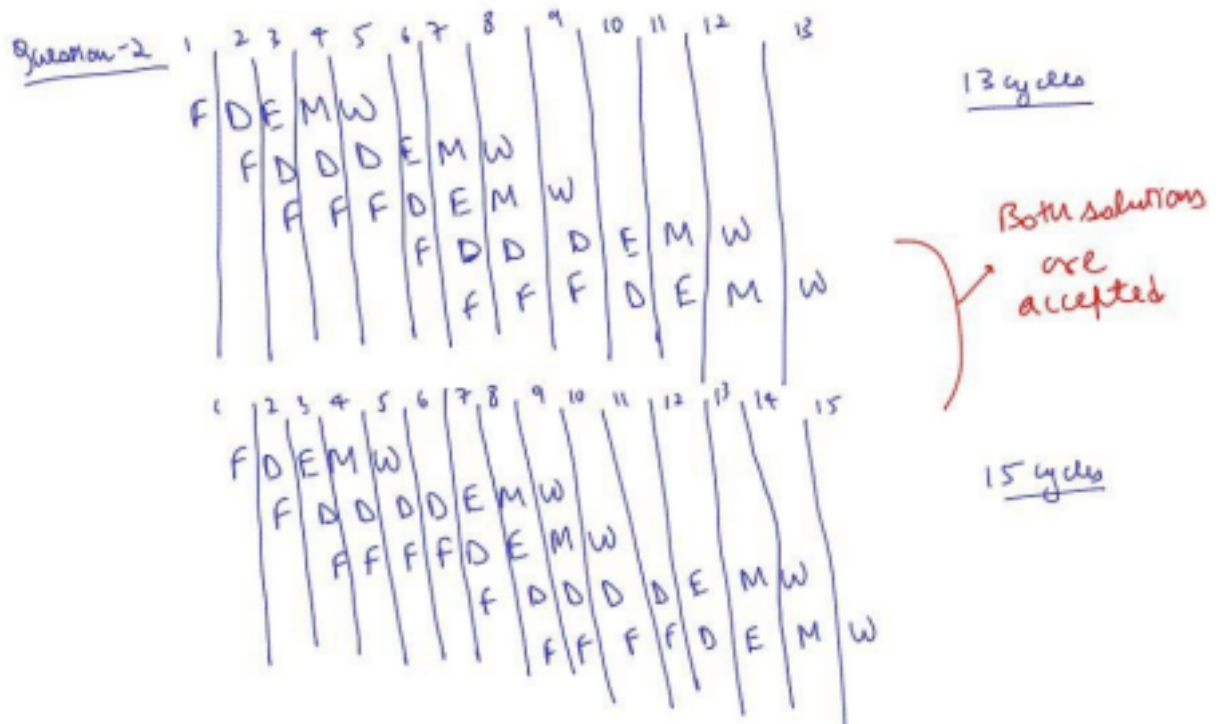 Question-2
1 2 3 4 5 6 7 8 9 10 11 12 13
F D E M W
F D D D E M W
F F F D E M W
F D D D E M W
F F F D E M W
13 cycles
Both solutions
are
accepted
1 2 3 4 5 6 7 8 9 10 11 12 13 14 15
F D E M W
F D D D D E M W
F F F F D E M W
F D D D D E M W
F F F F D E M W
15 cycles